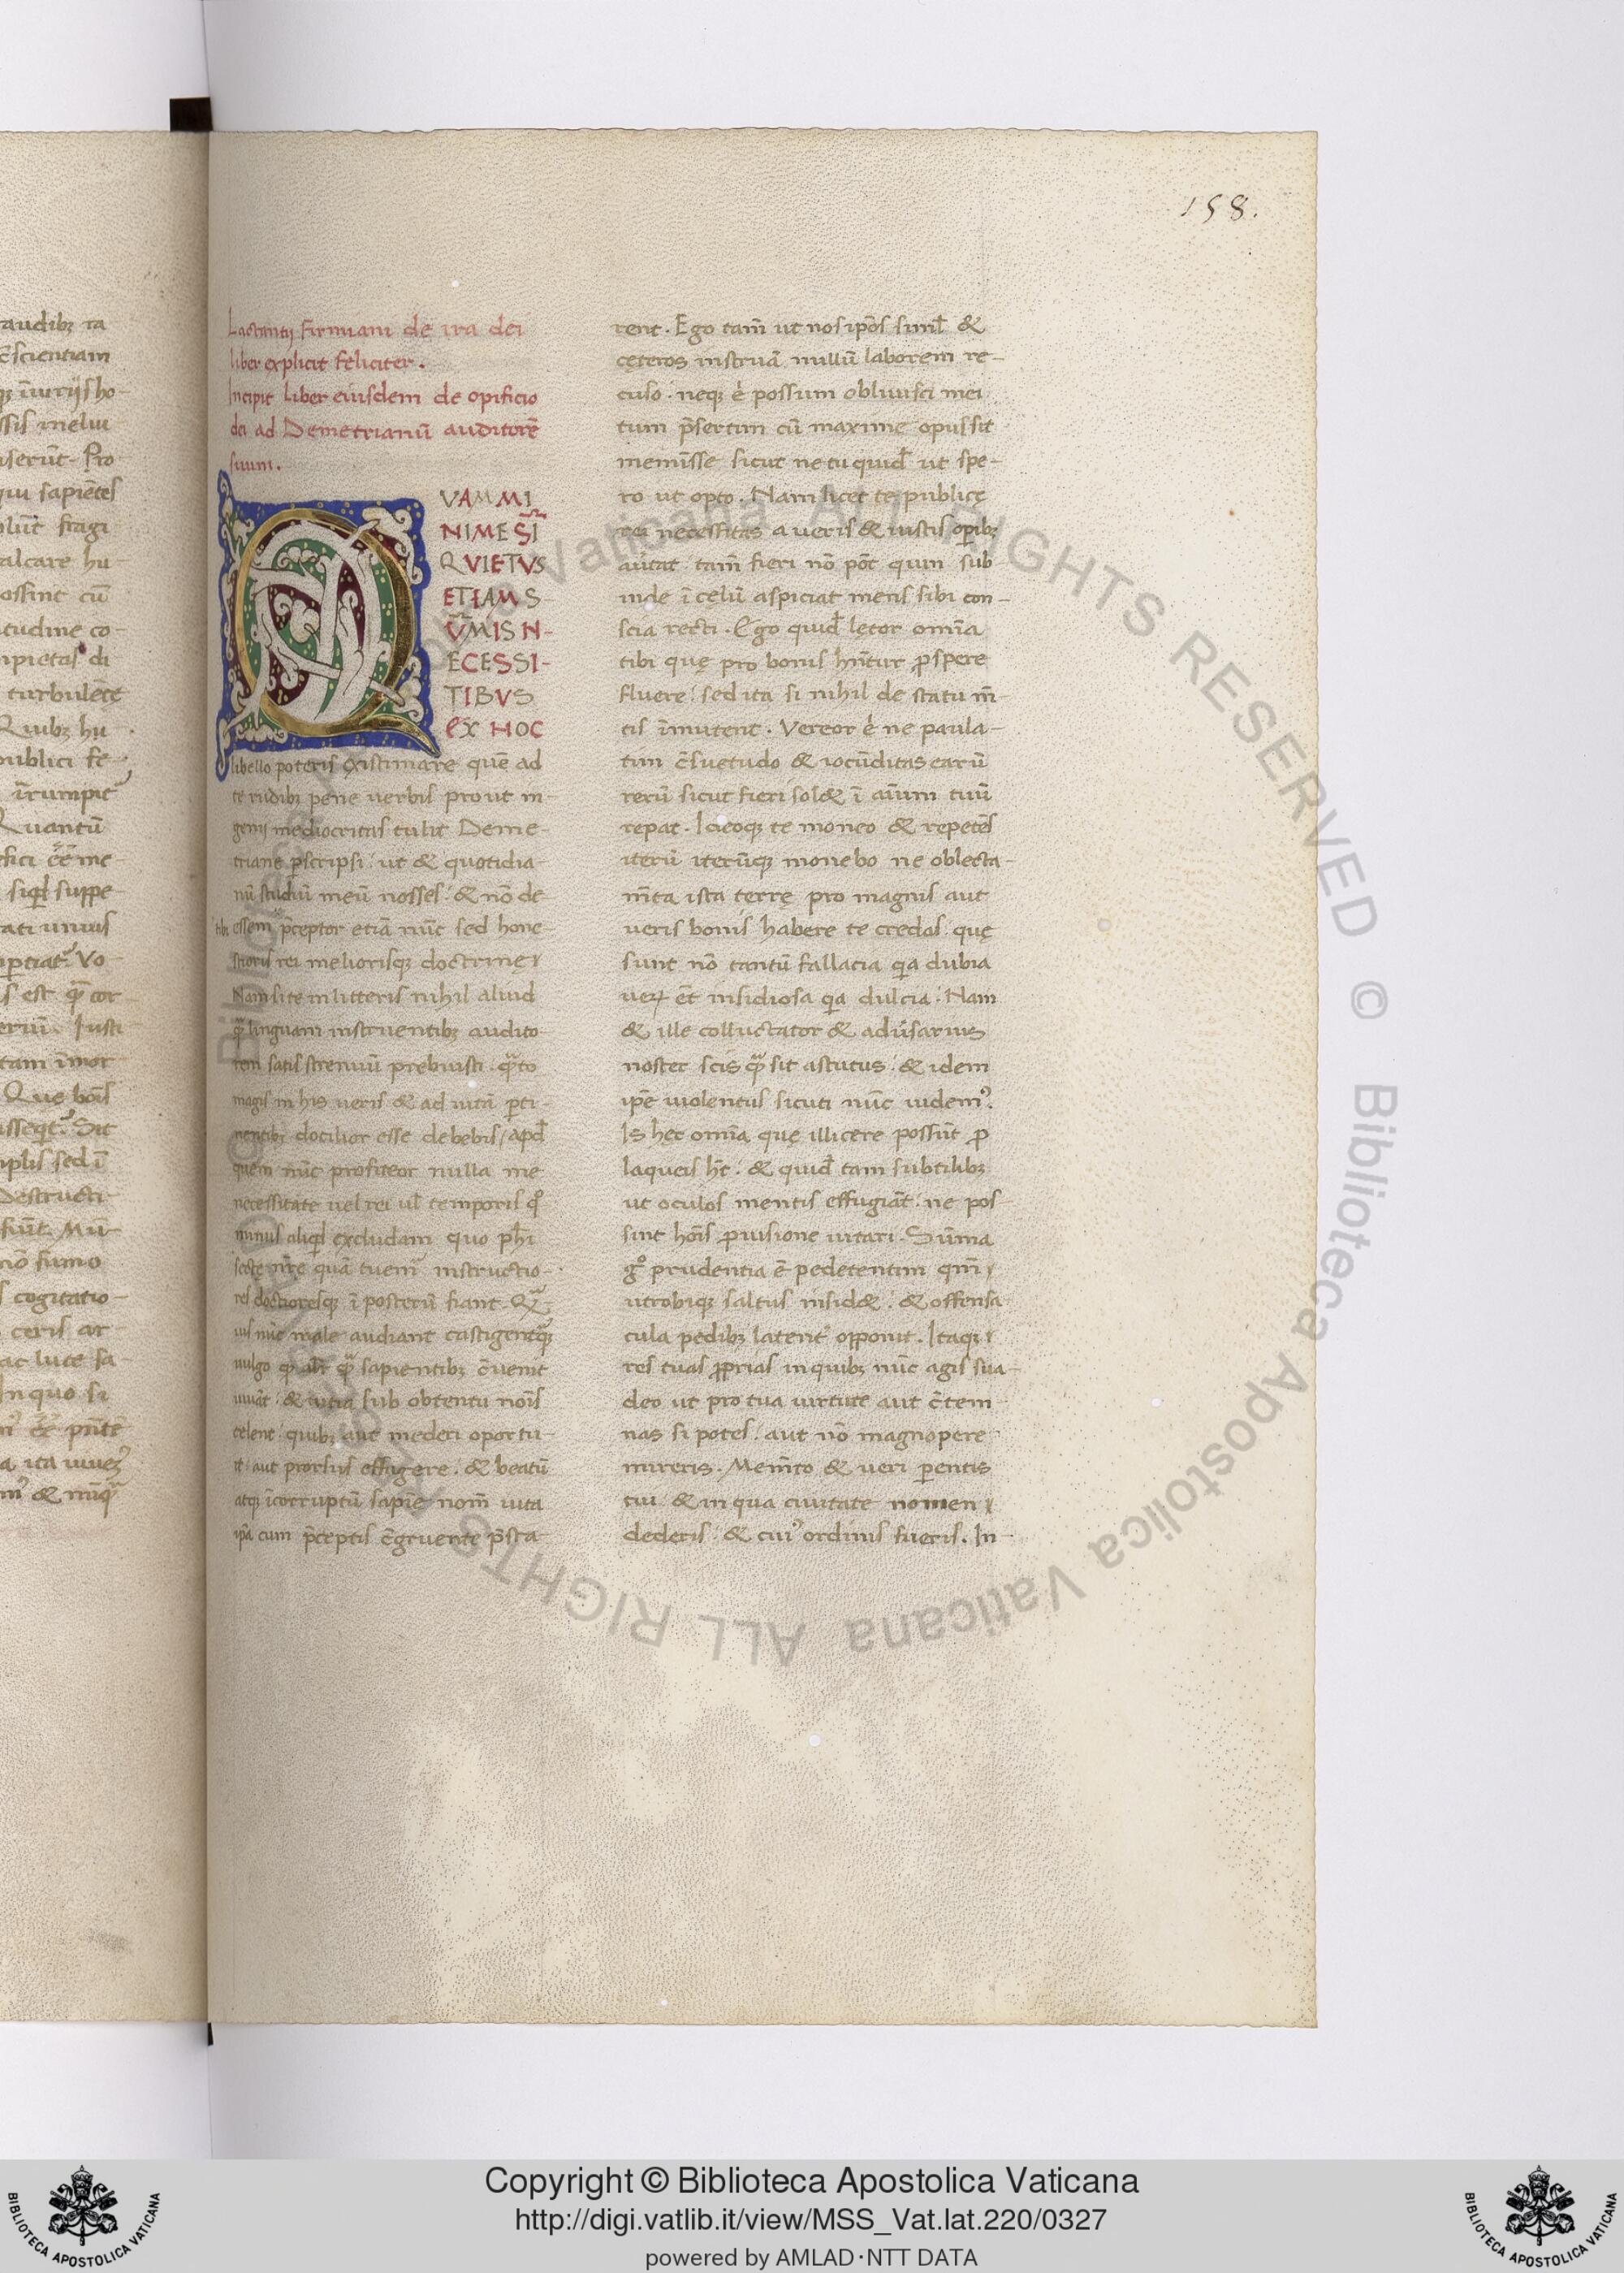 158.
Lactantij firmiani de ira dei
liber explicit feliciter.
Incipit liber eiusdem de opificio
dei ad Demetrianū auditorē
suum.
QVAM MI
NIME SĪ
QVIETVS
ETIAM S
VMIS N-
ECESSI-
TIBVS
EX HOC
libello poteris existimare quē ad
te rudibȝ pene uerbis prout in-
genij mediocritas tulit Deme-
triane pscripsi: ut & quotidia-
nū studiū meū nosses: & nō de
tibi essem p̄ceptor etiā nūc sed hone-
stioris rei meliorisqȝ doctrinę
Nam si te in litteris nihil aliud
q̄ linguam instruentibȝ audito-
rem satis strenuū prebuisti. q̄to
magis in his ueris & ad uitā pti-
nentibȝ docilior esse debebis/apd̄
quem nūc profiteor nulla me
necessitate uel rei ul̄ temporis q°
minus aliqd excludam quo phī
sectę nr̄ę quā tuem̄ instructio-
res doctioresqȝ ī posterū fiant. Q̄
uis nūc male audiant castigentqȝ
uulgo qȝ alr̄ q̄ sapientibȝ c̄uenit
uiuāt. & uitia sub obtentu nōis
celent: quibȝ aut mederi oportu-
it: aut prorsus effugere. & beatū
atqȝ īcorruptū sapīe nom̄ uita
ipā cum p̄ceptis c̄gruente p̄sta-
rent. Ego tam̄ ut nos ipōs simul̄ &
cęteros instruā nullū laborem re-
cuso. neqȝ ē possum obliuisci mei
tum p̄sertim cū maxime opus sit
meminisse sicut ne tu quid̄ ut spe-
ro ut opto. Nam licet te publicę
rei necessitas a ueris & iustis opibȝ
auertat. tam̄ fieri nō pōt quin sub
inde ī cęlū aspiciat mens sibi con-
scia recti. Ego quid̄ lętor omīa
tibi quę pro bonis hn̄tur pspere
fluere: sed ita si nihil de statu m̄-
tis īmutent. Vereor ē ne paula-
tim c̄suetudo & iocūditas earū
rerū sicut fieri sol& ī aīum tuū
repat. Icicoqȝ te moneo & repetēs
iterū iterūqȝ monebo ne oblecta-
m̄ta ista terrę pro magnis aut
ueris bonis habere te credas. quę
sunt nō tantū fallacia qa dubia
ueꝝ ēt insidiosa qa dulcia. Nam
& ille colluctator & adūsarius
noster scis q̄ sit astutus: & idem
ipē uiolentus sicuti nūc uidem⁹.
Is hec omīa quę illicere possūt p
laqueis h̄t. & quid̄ tam subtilibȝ
ut oculos mentis effugiāt: ne pos-
sint hōis puisione uitari. Sūma
g° prudentia ē pedetentim qm̄
utrobiqȝ saltus insid&. & offensa
cula pedibȝ latent̄ opponit. Itaqȝ
res tuas pprias in quibȝ nūc agis sua-
deo ut pro tua uirtute aut c̄tem-
nas si potes: aut nō magnopere
mireris. Mem̄to & ueri parentis
tui & in qua ciuitate nomen
dederis: & cui⁹ ordinis fueris. In-
Copyright © Biblioteca Apostolica Vaticana
http://digi.vatlib.it/view/MSS_Vat.lat.220/0327
powered by AMLAD·NTT DATA
BIBLIOTECA APOSTOLICA VATICANA
BIBLIOTECA APOSTOLICA VATICANA